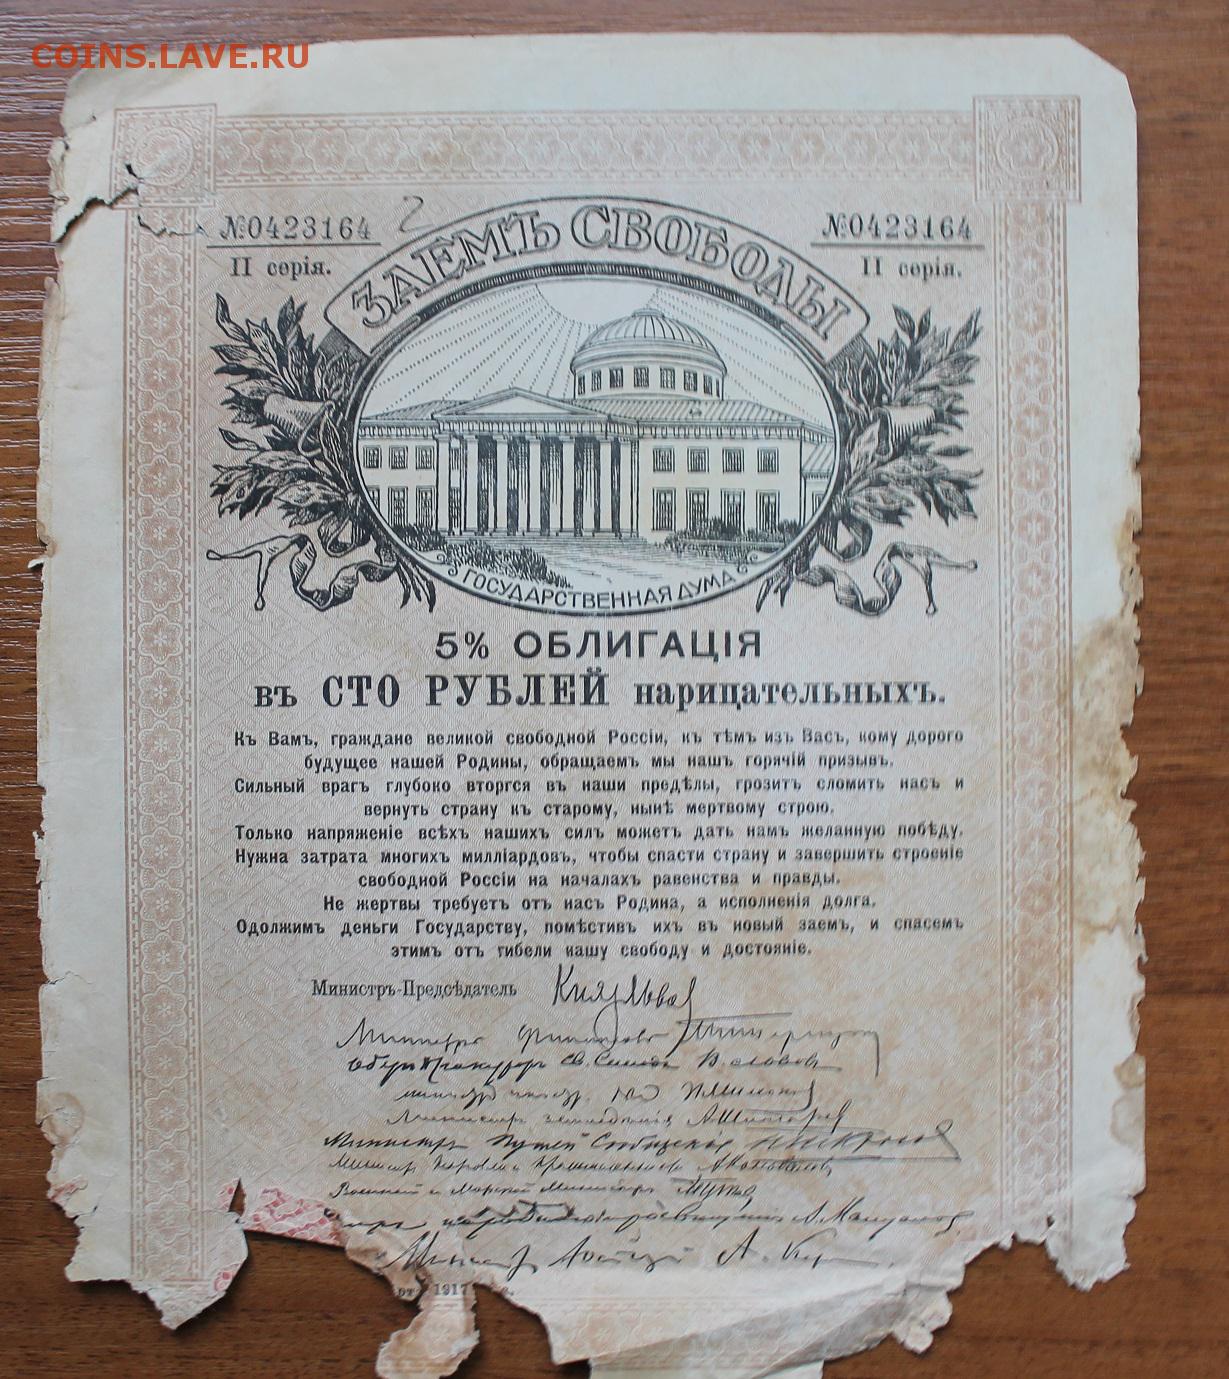 COINS.LAVE.RU
№0423164
2
№0423164
II серія.
II серія.
ЗАЕМЪ СВОБОДЫ
ГОСУДАРСТВЕННАЯ ДУМА
5% ОБЛИГАЦІЯ
въ СТО РУБЛЕЙ нарицательныхъ.
Къ Вамъ, граждане великой свободной Россіи, къ тѣмъ изъ Васъ, кому дорого
будущее нашей Родины, обращаемъ мы нашъ горячій призывъ.
Сильный врагъ глубоко вторгся въ наши предѣлы, грозитъ сломить насъ и
вернуть страну къ старому, нынѣ мертвому строю.
Только напряженіе всѣхъ нашихъ силъ можетъ дать намъ желанную побѣду.
Нужна затрата многихъ милліардовъ, чтобы спасти страну и завершить строеніе
свободной Россіи на началахъ равенства и правды.
Не жертвы требуетъ отъ насъ Родина, а исполненія долга.
Одолжимъ деньги Государству, помѣстивъ ихъ въ новый заемъ, и спасемъ
этимъ отъ гибели нашу свободу и достояніе.
Министръ-Предсѣдатель Князь Львов
Министръ Финансовъ М Терещенко
Обер Прокуроръ Св. Синода В. Львовъ
П Милюков
Министръ земледѣлія А Шингарев
Министръ Путей Сообщенія Н Некрасов
Министръ Торговли и Промышленности А Коновалов
Военный и Морской Министръ А Гучков
народнаго просвѣщенія А. Мануйлов
Министр Юстиціи А. Кер
1917